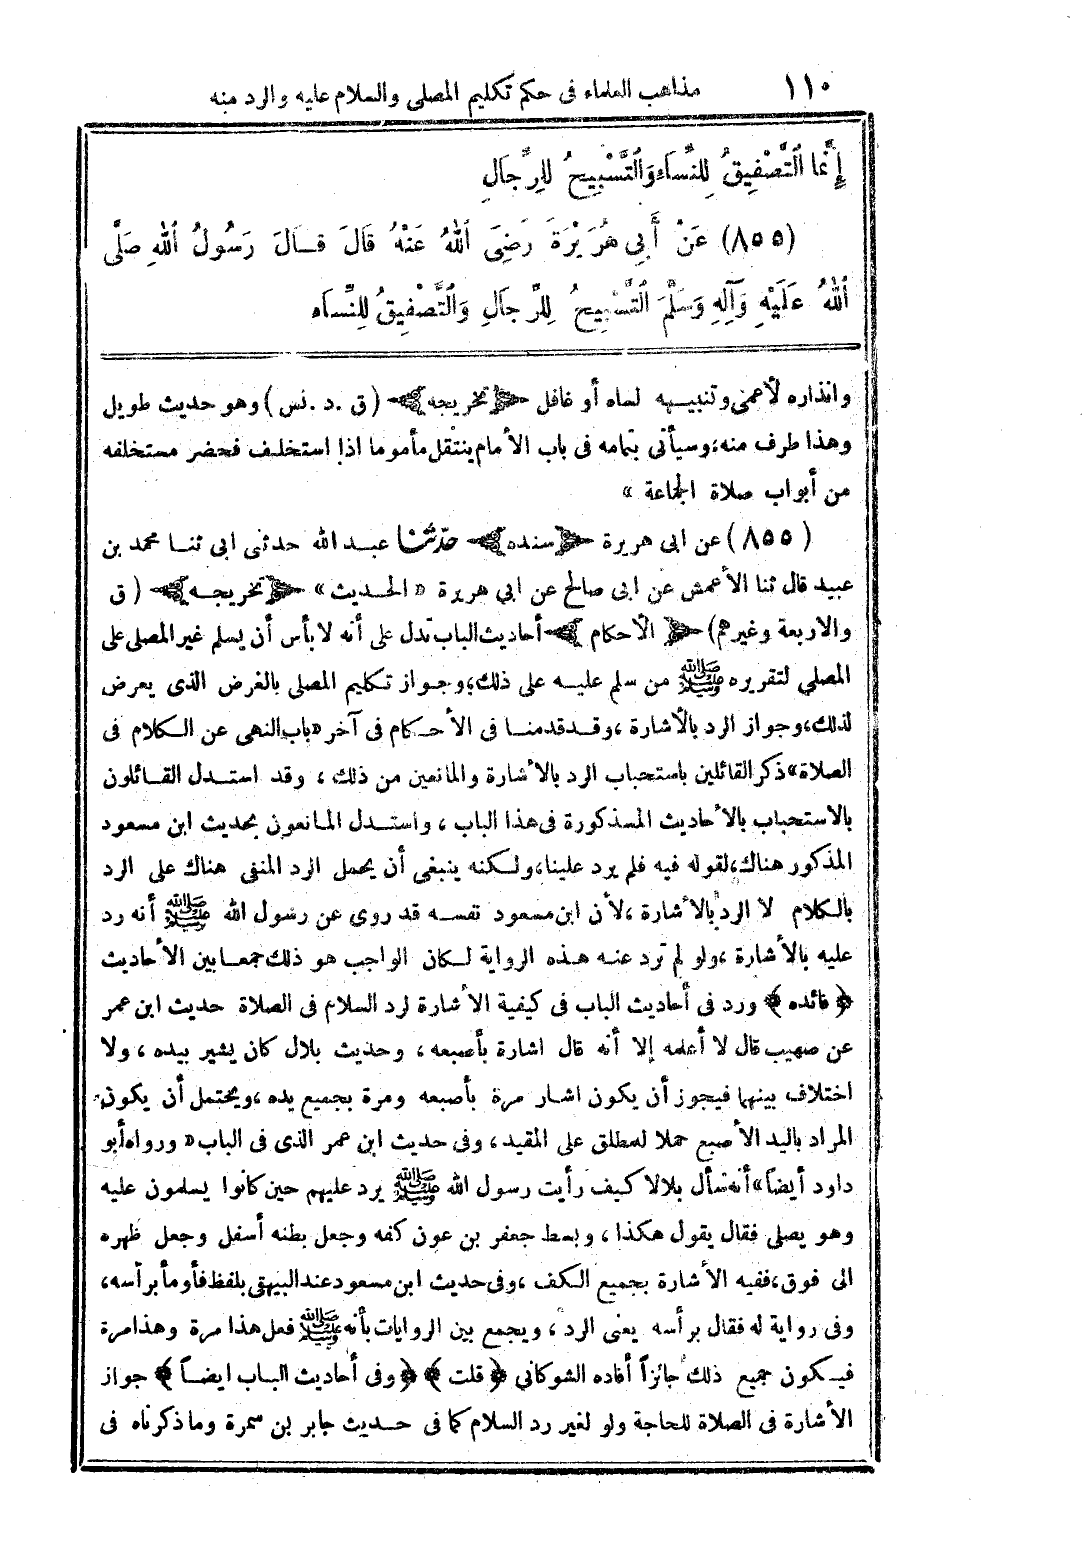 ١١٠ مذاهب العلماء فى حكم تكليم المصلى والسلام عليه والرد منه
إِنَّمَا ٱلتَّصْفِيقُ لِلنِّسَاءِ وَٱلتَّسْبِيحُ لِلرِّجَالِ
(٨٥٥) عَنْ أَبِي هُرَيْرَةَ رَضِىَ ٱللهُ عَنْهُ قَالَ قَالَ رَسُولُ ٱللهِ صَلَّى
ٱللهُ عَلَيْهِ وَآلِهِ وَسَلَّمَ ٱلتَّسْبِيحُ لِلرِّجَالِ وَٱلتَّصْفِيقُ لِلنِّسَاءِ
وانذاره لأعمى وتنبيهه لساه أو غافل ﴿تخريجه﴾ (ق . د . نس) وهو حديث طويل
وهذا طرف منه؛ وسيأتى بتمامه فى باب الأمام ينتقل مأموما اذا استخلف فحضر مستخلفه
من أبواب صلاة الجماعة »
(٨٥٥) عن ابى هريرة ﴿سنده﴾ حدّثنا عبد الله حدثنى ابى ثنا محمد بن
عبيد قال ثنا الأعمش عن ابى صالح عن ابي هريرة « الحديث » ﴿تخريجه﴾ (ق
والاربعة وغيرهم) ﴿الأحكام﴾ أحاديث الباب تدل على أنه لا بأس أن يسلم غير المصلى على
المصلي لتقريره ﷺ من سلم عليه على ذلك؛ وجواز تكليم المصلى بالغرض الذى يعرض
لذلك، وجواز الرد بالأشارة ، وقد قدمنا فى الأحكام فى آخر « باب النهى عن الكلام فى
الصلاة » ذكر القائلين باستحباب الرد بالاشارة والمانعين من ذلك ، وقد استدل القائلون
بالاستحباب بالأحاديث المذكورة فى هذا الباب ، واستدل المانعون بحديث ابن مسعود
المذكور هناك، لقوله فيه فلم يرد علينا، ولكنه ينبغى أن يحمل الرد المنفى هناك على الرد
بالكلام لا الرد بالأشارة ، لأن ابن مسعود نفسه قد روى عن رسول الله ﷺ أنه رد
عليه بالأشارة ، ولو لم ترد عنه هذه الرواية لكان الواجب هو ذلك جمعا بين الأحاديث
﴿ فائده ﴾ ورد فى أحاديث الباب فى كيفية الأشارة لرد السلام فى الصلاة حديث ابن عمر
عن صهيب قال لا أعلمه إلا أنه قال اشارة بأصبعه ، وحديث بلال كان يشير بيده ، ولا
اختلاف بينهما فيجوز أن يكون اشار مرة بأصبعه ومرة بجميع يده ، ويحتمل أن يكون
المراد باليد الأصبع حملا للمطلق على المقيد ، وفى حديث ابن عمر الذى فى الباب « ورواه أبو
داود أيضاً » أنه سأل بلالا كيف رأيت رسول الله ﷺ يرد عليهم حين كانوا يسلمون عليه
وهو يصلى فقال يقول هكذا ، وبسط جعفر بن عون كفه وجعل بطنه أسفل وجعل ظهره
الى فوق، ففيه الأشارة بجميع الكف ، وفى حديث ابن مسعود عند البيهقى بلفظ فأومأ برأسه،
وفى رواية له فقال برأسه يعنى الرد ، ويجمع بين الروايات بأنه ﷺ فعل هذا مرة وهذا مرة
فيكون جميع ذلك جائزاً أفاده الشوكاني ﴿ قلت ﴾ ﴿ وفى أحاديث الباب ايضاً ﴾ جواز
الأشارة فى الصلاة للحاجة ولو لغير رد السلام كما فى حديث جابر بن سمرة وما ذكرناه فى